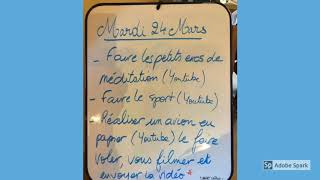 Mardi 24 Mars
- Faire les petits exos de
méditation (Youtube)
- Faire le sport (Youtube)
- Réaliser un avion en
papier (Youtube) le faire
voler, vous filmer et
envoyer la vidéo *
Adobe Spark